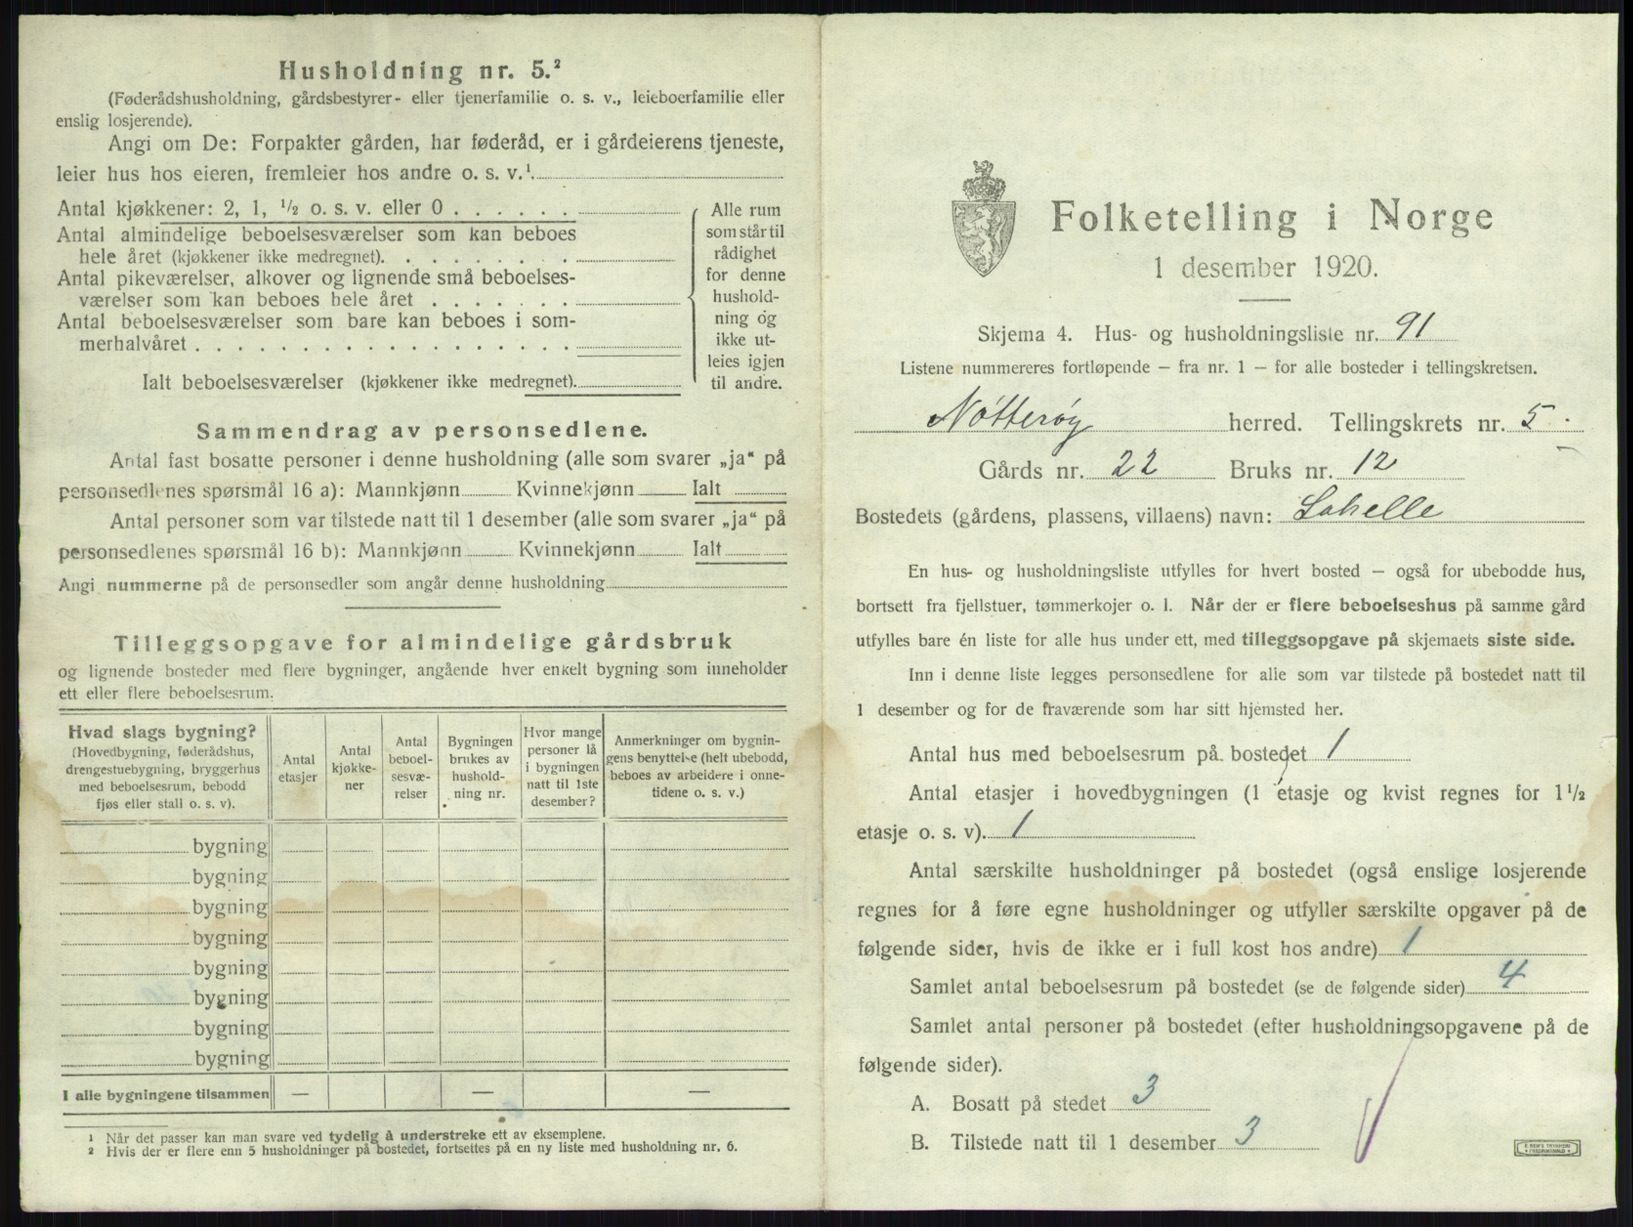 Husholdning nr. 5.²
(Føderådshusholdning, gårdsbestyrer- eller tjenerfamilie o. s. v., leieboerfamilie eller
enslig losjerende).
Angi om De: Forpakter gården, har føderåd, er i gårdeierens tjeneste,
leier hus hos eieren, fremleier hos andre o. s. v.¹
Antal kjøkkener: 2, 1, ½ o. s. v. eller 0 . . . . . .
Antal almindelige beboelsesværelser som kan beboes
hele året (kjøkkener ikke medregnet). . . . . . . . .
Antal pikeværelser, alkover og lignende små beboelses-
værelser som kan beboes hele året . . . . . . .
Antal beboelsesværelser som bare kan beboes i som-
merhalvåret . . . . . . . . . . . . . . . . . .
Ialt beboelsesværelser (kjøkkener ikke medregnet).
Alle rum
som står til
rådighet
for denne
hushold-
ning og
ikke ut-
leies igjen
til andre.
Sammendrag av personsedlene.
Antal fast bosatte personer i denne husholdning (alle som svarer „ja“ på
personsedlenes spørsmål 16 a): Mannkjønn Kvinnekjønn Ialt
Antal personer som var tilstede natt til 1 desember (alle som svarer „ja“ på
personsedlenes spørsmål 16 b): Mannkjønn Kvinnekjønn Ialt
Angi nummerne på de personsedler som angår denne husholdning
Tilleggsopgave for almindelige gårdsbruk
og lignende bosteder med flere bygninger, angående hver enkelt bygning som inneholder
ett eller flere beboelsesrum.
Hvad slags bygning?
(Hovedbygning, føderådshus,
drengestuebygning, bryggerhus
med beboelsesrum, bebodd
fjøs eller stall o. s. v).
Antal
etasjer
Antal
kjøkke-
ner
Antal
beboel-
sesvæ-
relser
Bygningen
brukes av
hushold-
ning nr.
Hvor mange
personer lå
i bygningen
natt til 1ste
desember?
Anmerkninger om bygnin-
gens benyttelse (helt ubebodd,
beboes av arbeidere i onne-
tidene o. s. v.)
bygning
bygning
bygning
bygning
bygning
bygning
bygning
bygning
I alle bygningene tilsammen — — —
¹ Når det passer kan man svare ved tydelig å understreke ett av eksemplene.
² Hvis der er flere enn 5 husholdninger på bostedet, fortsettes på en ny liste med husholdning nr. 6.
Folketelling i Norge
1 desember 1920.
Skjema 4. Hus- og husholdningsliste nr. 91
Listene nummereres fortløpende – fra nr. 1 – for alle bosteder i tellingskretsen.
Nøtterøy herred. Tellingskrets nr. 5.
Gårds nr. 22 Bruks nr. 12
Bostedets (gårdens, plassens, villaens) navn: Lahelle
En hus- og husholdningsliste utfylles for hvert bosted – også for ubebodde hus,
bortsett fra fjellstuer, tømmerkojer o. l. Når der er flere beboelseshus på samme gård
utfylles bare én liste for alle hus under ett, med tilleggsopgave på skjemaets siste side.
Inn i denne liste legges personsedlene for alle som var tilstede på bostedet natt til
1 desember og for de fraværende som har sitt hjemsted her.
Antal hus med beboelsesrum på bostedet 1
Antal etasjer i hovedbygningen (1 etasje og kvist regnes for 1½
etasje o. s. v). 1
Antal særskilte husholdninger på bostedet (også enslige losjerende
regnes for å føre egne husholdninger og utfyller særskilte opgaver på de
følgende sider, hvis de ikke er i full kost hos andre) 1
Samlet antal beboelsesrum på bostedet (se de følgende sider) 4
Samlet antal personer på bostedet (efter husholdningsopgavene på de
følgende sider).
A. Bosatt på stedet 3
B. Tilstede natt til 1 desember 3